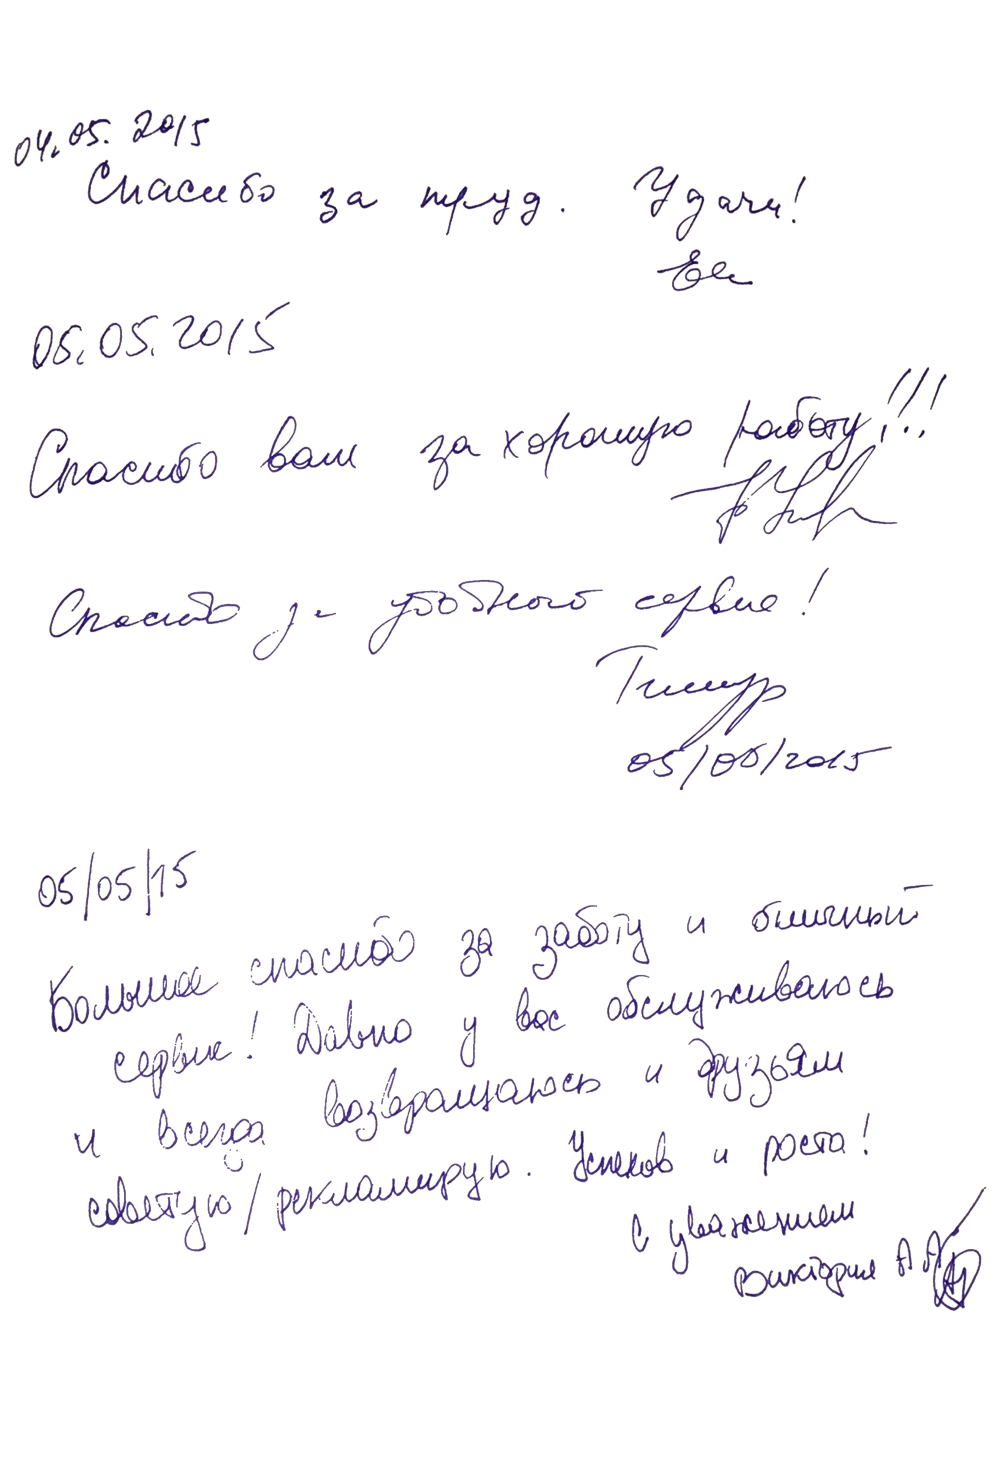 04.05.2015
Спасибо за труд. Удачи!
05.05.2015
Спасибо вам за хорошую работу!!!
Спасибо за удобный сервис!
Тимур
05/05/2015
05/05/15
Большое спасибо за заботу и отличный
сервис! Давно у вас обслуживаюсь
и всегда возвращаюсь и друзьям
советую/рекламирую. Успехов и роста!
С уважением
Виктория А А